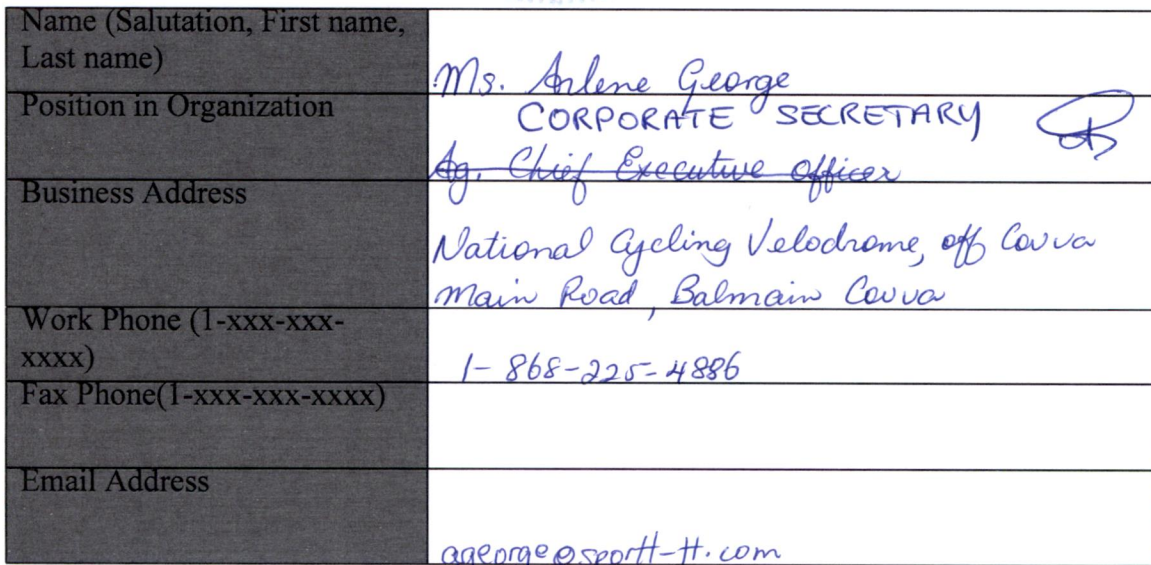 Name (Salutation, First name,
Last name)
Ms. Arlene George
Position in Organization
CORPORATE SECRETARY
Ag. Chief Executive Officer
Business Address
National Cycling Velodrome, off Couva
Main Road, Balmain Couva
Work Phone (1-xxx-xxx-
xxxx)
1-868-225-4886
Fax Phone(1-xxx-xxx-xxxx)
Email Address
ageorge@sportt-tt.com